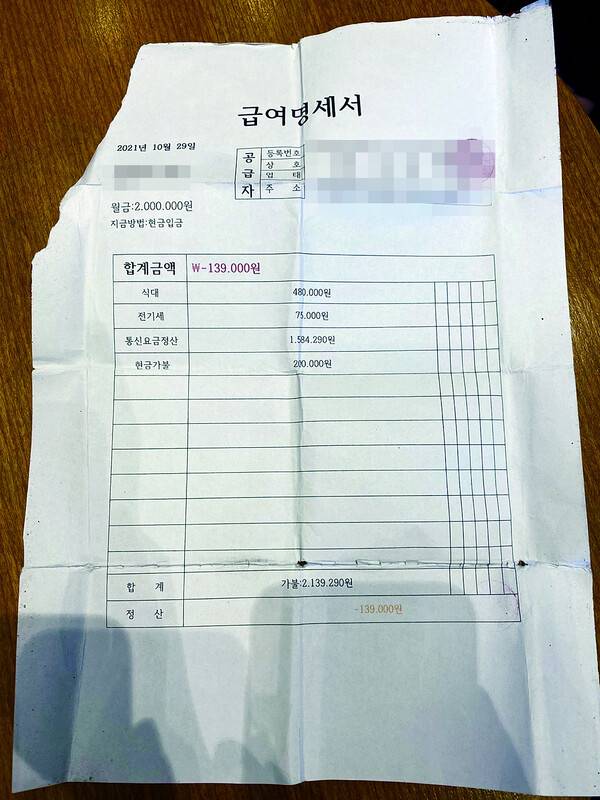 급여명세서
2021년 10월 29일
공급자
등록번호
상 호
업 태
주 소
월금:2.000.000원
지금방법:현금입금
합계금액 W-139.000원
식대 480.000원
전기세 75.000원
통신요금정산 1.584.290원
현금가불 200.000원
합 계 가불:2.139.290원
정 산 -139.000원